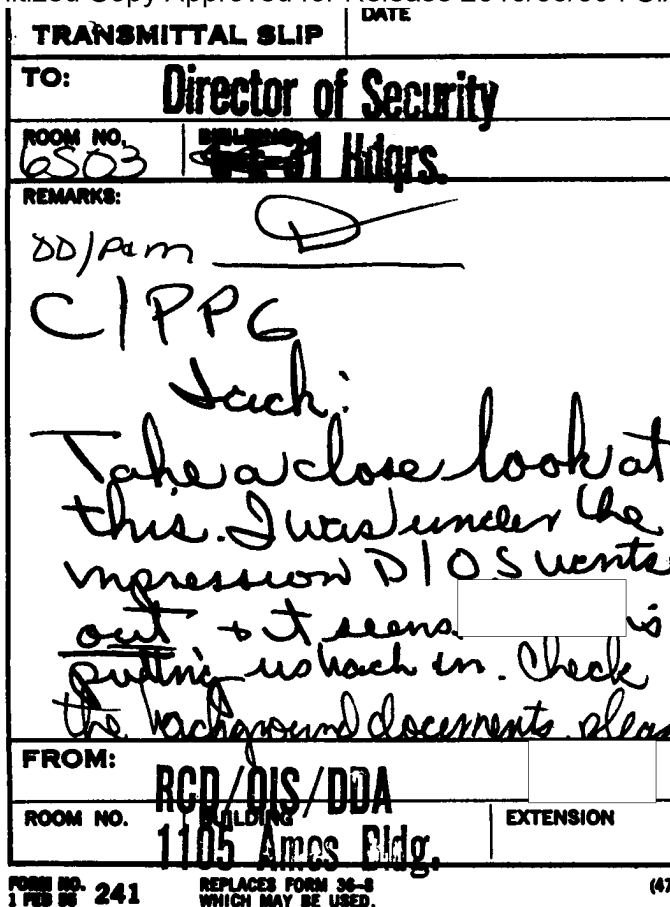 Copy Approved for Release
TRANSMITTAL SLIP
DATE
TO:
Director of Security
ROOM NO.
BUILDING
6S03
Hdqrs.
REMARKS:
DD/P&M
C/PPG
Jack:
Take a close look at
this. I was under the
impression D/OS wants
out & it seems is
putting us back in. Check
the background documents, please
FROM:
RCD/OIS/DDA
ROOM NO.
BUILDING
EXTENSION
1105 Ames Bldg.
FORM NO.
1 FEB 55
241
REPLACES FORM 36-8
WHICH MAY BE USED.
(47